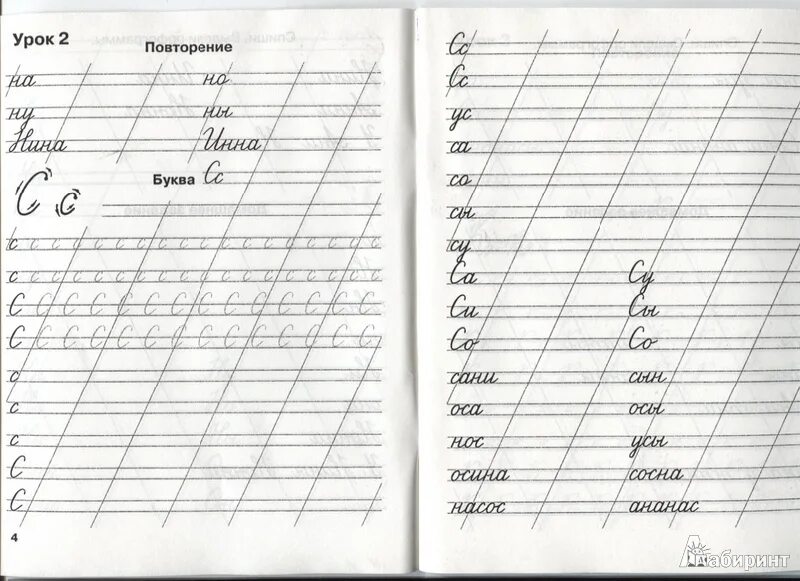 Урок 2
Повторение
на но
ну ны
Нина Инна
Буква Сс
С с
с с с с с с с с с с с с с с с с с
с с с с с с с с с с с с с с с с с
С С С С С С С С С С С С С С
С С С С С С С С С С С С С С
с
с
с
С
С
4
Сс
Сс
ус
са
со
сы
су
Са Су
Си Сы
Со Со
сани сын
оса осы
нос усы
осина сосна
насос ананас
Лабиринт